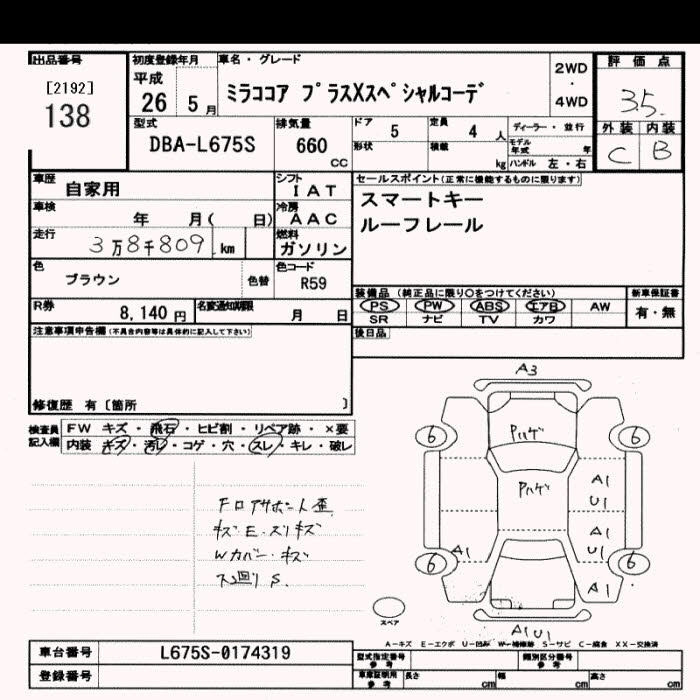 出品番号
[2192]
138
初度登録年月
平成
26 5月
車名・グレード
ミラココア プラスXスペシャルコーデ
2WD
・
4WD
評価点
3.5
外装 内装
C B
型式
DBA-L675S
排気量
660
CC
ドア 5
定員 4 人
形状
積載 kg
ディーラー・並行
モデル年式 年
ハンドル 左・右
車歴 自家用
シフト
IAT
車検 年 月( 日)
冷房
AAC
走行 3万8千809 km
燃料
ガソリン
色 ブラウン
色替
色コード
R59
R券 8,140 円
名変通知期限 月 日
セールスポイント(正常に機能するものに限ります)
スマートキー
ルーフレール
装備品(純正品に限り○をつけてください)
PS PW ABS エアB AW
SR ナビ TV カワ
新車保証書
有・無
後日品
注意事項申告欄(不具合内容等は具体的に記入して下さい)
修復歴 有〔箇所 〕
検査員記入欄
FW キズ・飛石・ヒビ割・リペア跡・×要
内装 キズ・汚レ・コゲ・穴・スレ・キレ・破レ
キズ E・スリキズ
Wカバー・キズ
ス廻り S.
A3
6 6
Pハゲ
Pハゲ
A1
U1
A1
U1
A1
6 6
A1
A1U1
スペア
A-キズ E-エクボ U-凹み W-補修跡 S-サビ C-腐食 XX-交換済
車台番号 L675S-0174319
登録番号
型式指定番号
参考
類別区分番号
参考
車庫証明用
参考
長さ cm
幅 cm
高さ cm